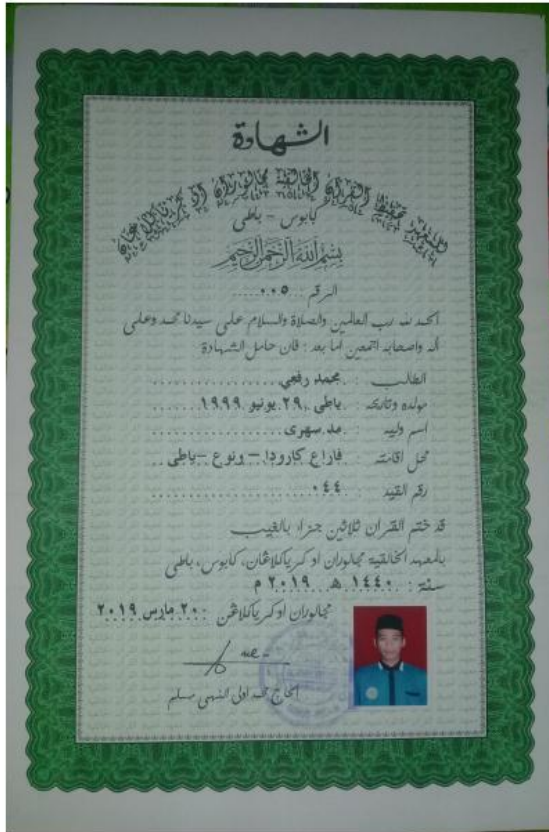 الشهادة
كابوس - باطى
بسم الله الرحمن الرحيم
الرقم ...٠٠٥.....
الحمد لله رب العالمين والصلاة والسلام على سيدنا محمد وعلى
آله واصحابه اجمعين اما بعد : فان حامل الشهادة
الطالب : .محمد رفعي..................
مولده وتاريخه : .باطى ,٢٩ يونيو ١٩٩٩...........
اسم وليه : .مد سهرى....................
محل اقامته : فاراع كارودا – ونوع –باطى ..
رقم القيد : ٠٤٤ ........................
قد ختم القران ثلاثين جزءا بالغيب
بالمعهد الخالقية مجالوران او كرياكلاغان، كابوس، باطى
سنة : ١٤٤٠ هـ ٢٠١٩ م
مجالوران اوكرياكلاغن ٢٠٠ مارس ٢٠١٩
الحاج محمد اولى النهى مسلم